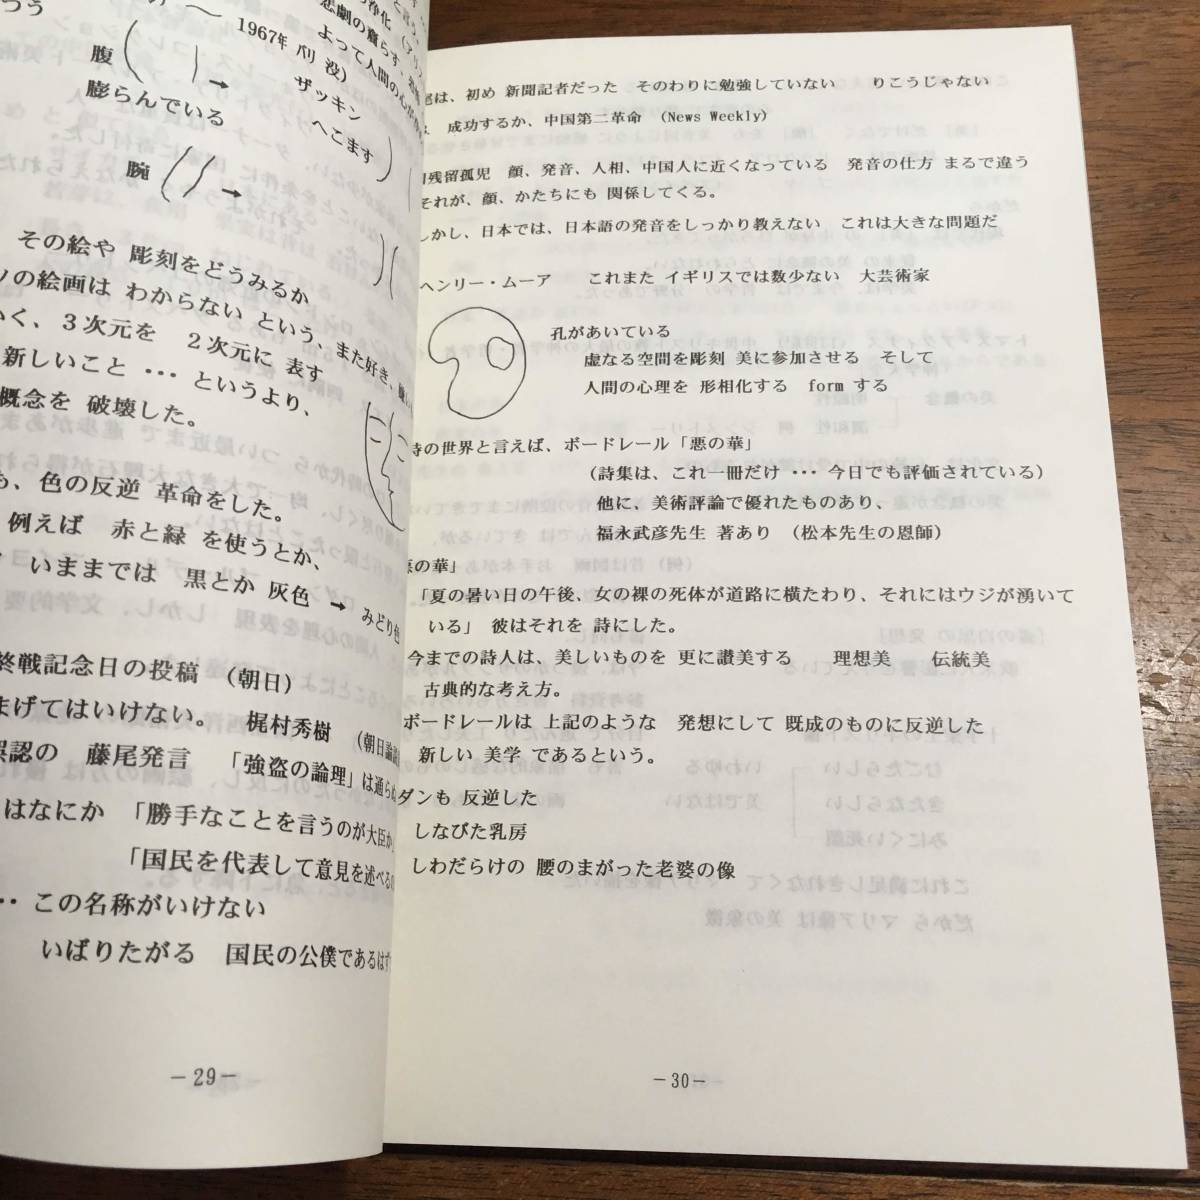 つう
1967年 パリ 没)
よって人間の心が
悲劇の齎らす、
腹
ザッキン
膨らんでいる
へこます
腕
その絵や 彫刻をどうみるか
の絵画は わからない という、また好き、
く、3次元を 2次元に 表す
新しいこと ・・・ というより、
概念を 破壊した。
も、色の反逆 革命をした。
例えば 赤と緑 を使うとか、
いままでは 黒とか 灰色 → みどり色
終戦記念日の投稿 (朝日)
まげてはいけない。 梶村秀樹 (朝日論
誤認の 藤尾発言 「強盗の論理」は通らぬ
はなにか 「勝手なことを言うのが大臣か
「国民を代表して意見を述べるの
・・ この名称がいけない
いばりたがる 国民の公僕であるはず
－29－
尾は、初め 新聞記者だった そのわりに勉強していない りこうじゃない
成功するか、中国第二革命 (News Weekly)
残留孤児 顔、発音、人相、中国人に近くなっている 発音の仕方 まるで違う
それが、顔、かたちにも 関係してくる。
しかし、日本では、日本語の発音をしっかり教えない これは大きな問題だ
ヘンリー・ムーア これまた イギリスでは数少ない 大芸術家
孔があいている
虚なる空間を彫刻 美に参加させる そして
人間の心理を 形相化する form する
詩の世界と言えば、ボードレール「悪の華」
(詩集は、これ一冊だけ ・・・ 今日でも評価されている)
他に、美術評論で優れたものあり、
福永武彦先生 著あり (松本先生の恩師)
悪の華」
「夏の暑い日の午後、女の裸の死体が道路に横たわり、それにはウジが湧いて
いる」 彼はそれを 詩にした。
今までの詩人は、美しいものを 更に讃美する 理想美 伝統美
古典的な考え方。
ボードレールは 上記のような 発想にして 既成のものに反逆した
新しい 美学 であるという。
ダンも 反逆した
しなびた乳房
しわだらけの 腰のまがった老婆の像
－30－